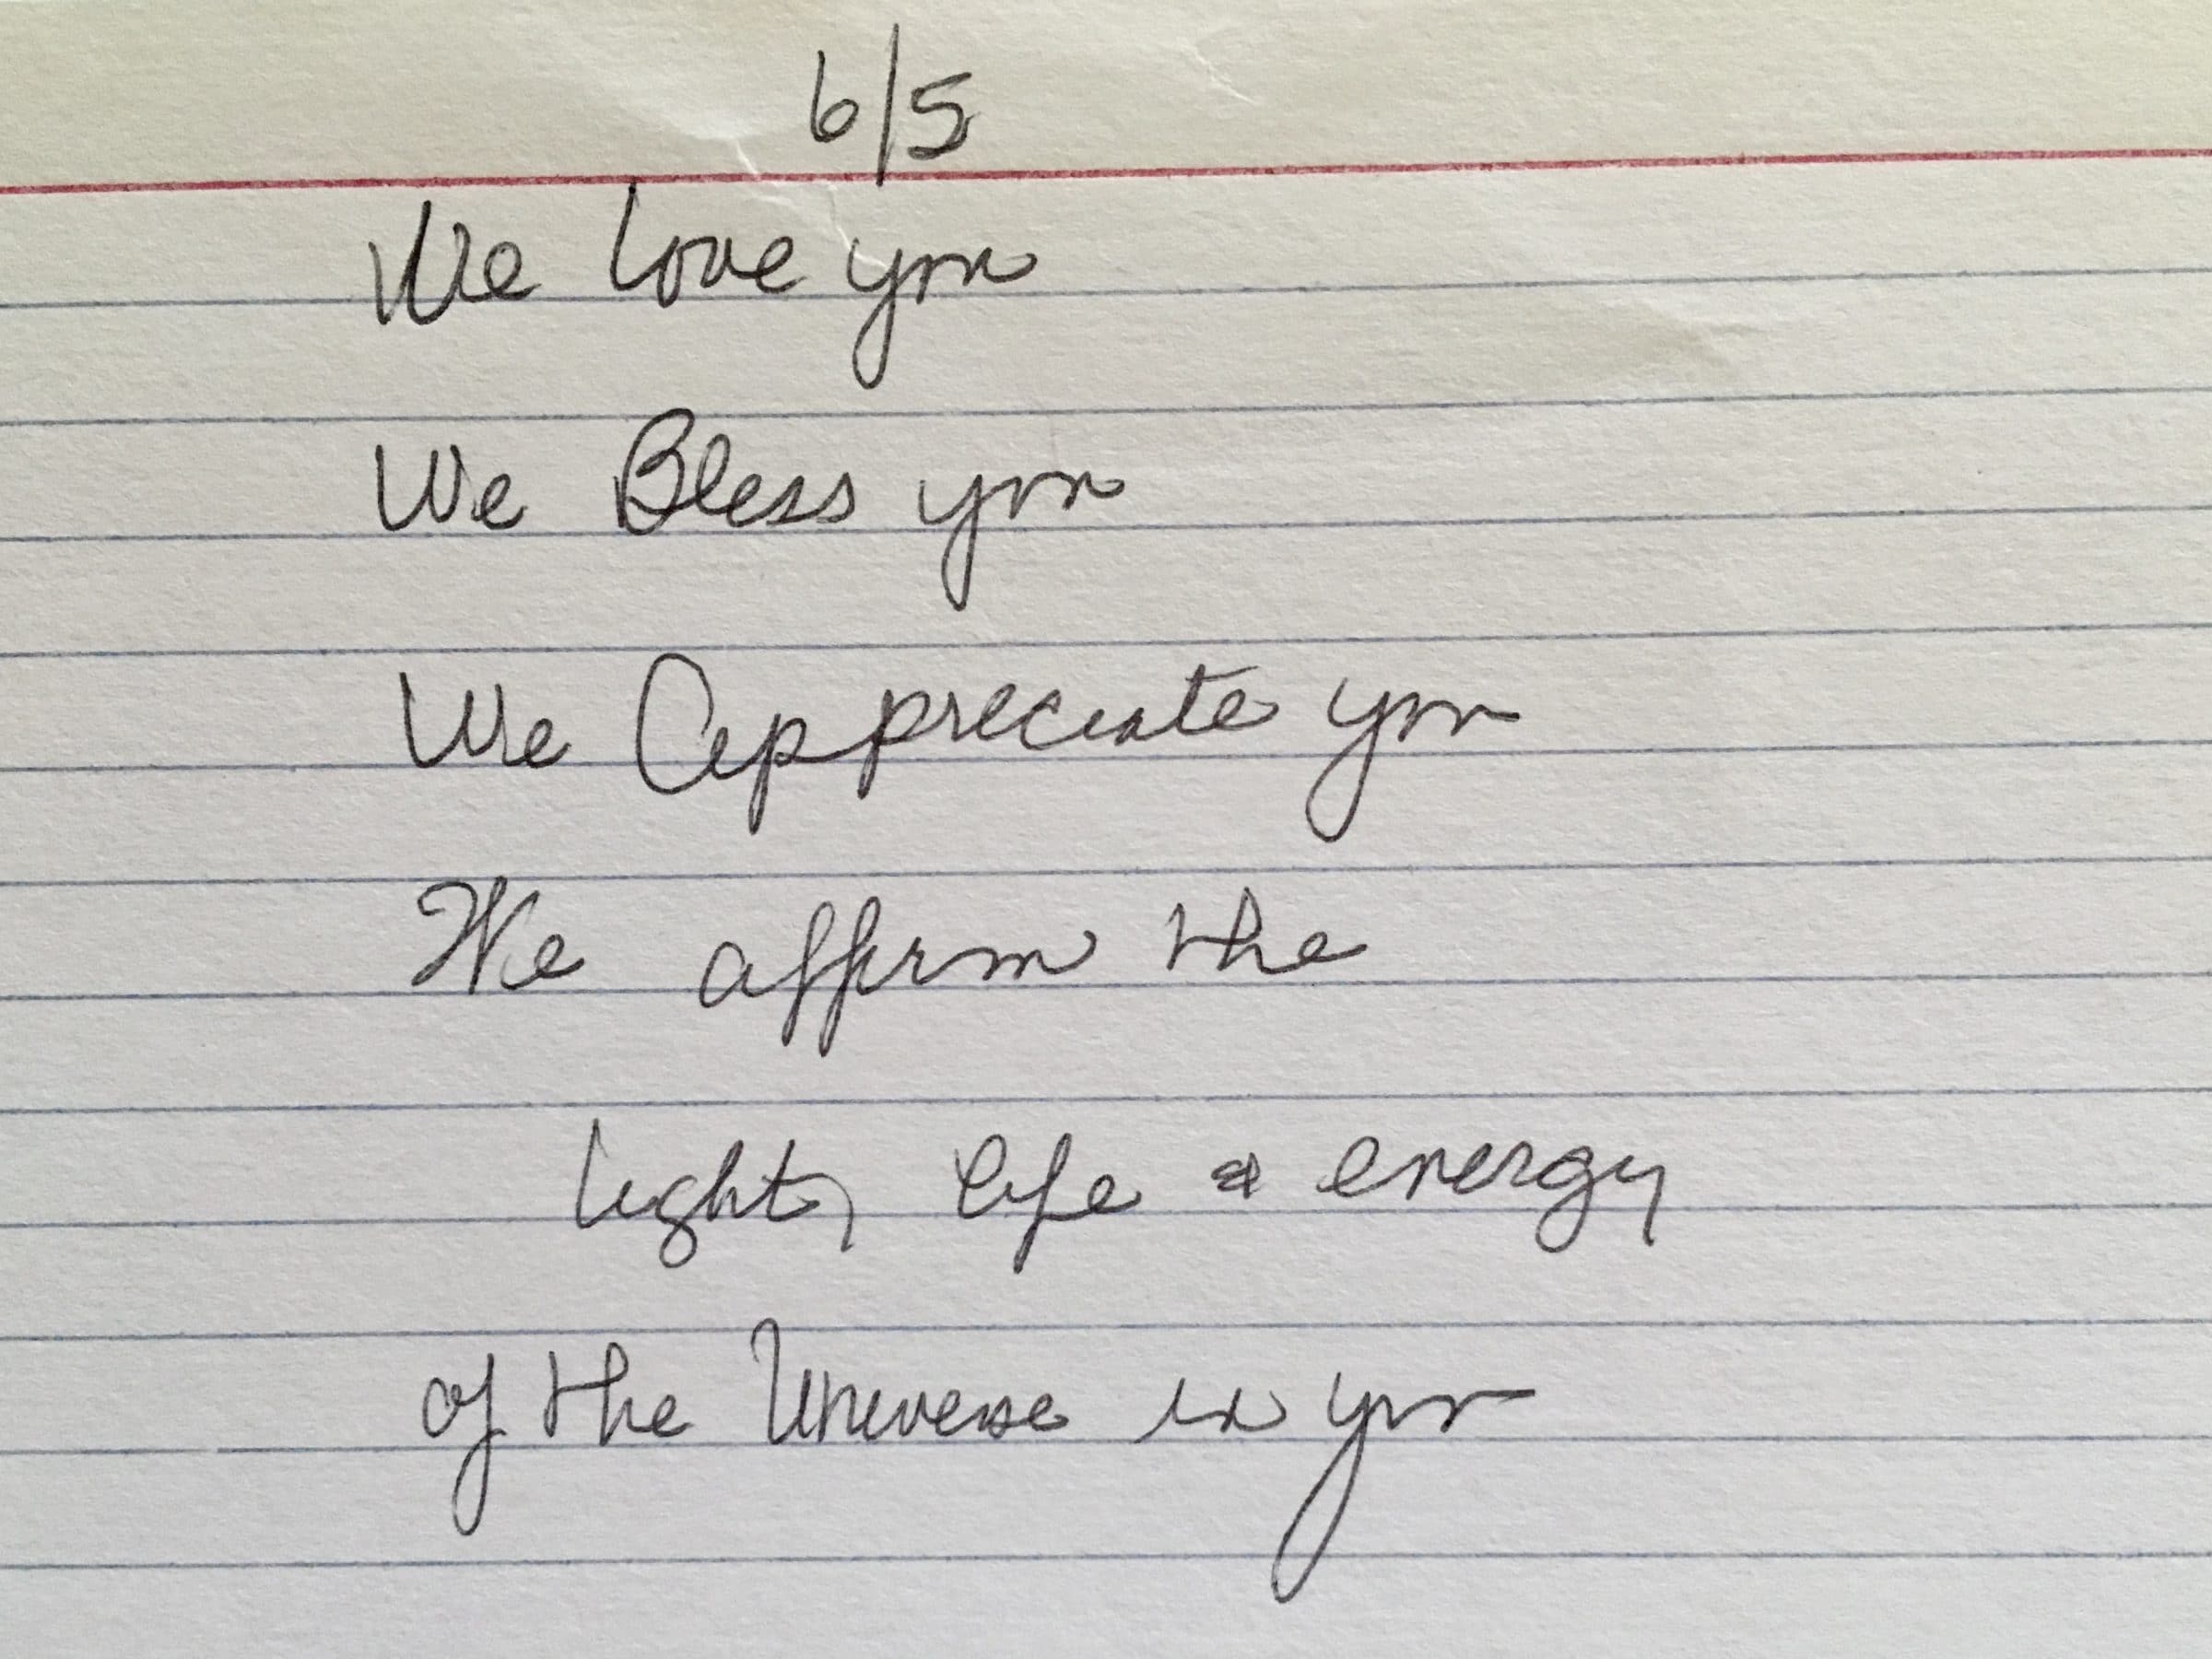 6/5
We love you
We Bless you
We Appreciate you
We affirm the
light, life & energy
of the Universe in you